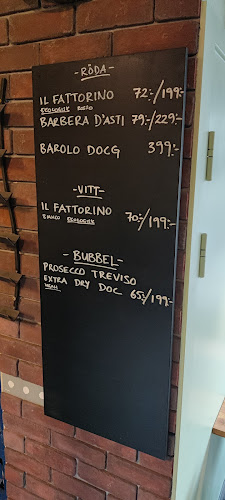 - RÖDA -
IL FATTORINO 72:-/199:-
EKOLOGISK ROSSO
BARBERA D'ASTI 79:-/229:-
BAROLO DOCG 399:-
- VITT -
IL FATTORINO 70:-/199:-
BIANCO EKOLOGISK
- BUBBEL -
PROSECCO TREVISO
EXTRA DRY DOC 65:-/199:-